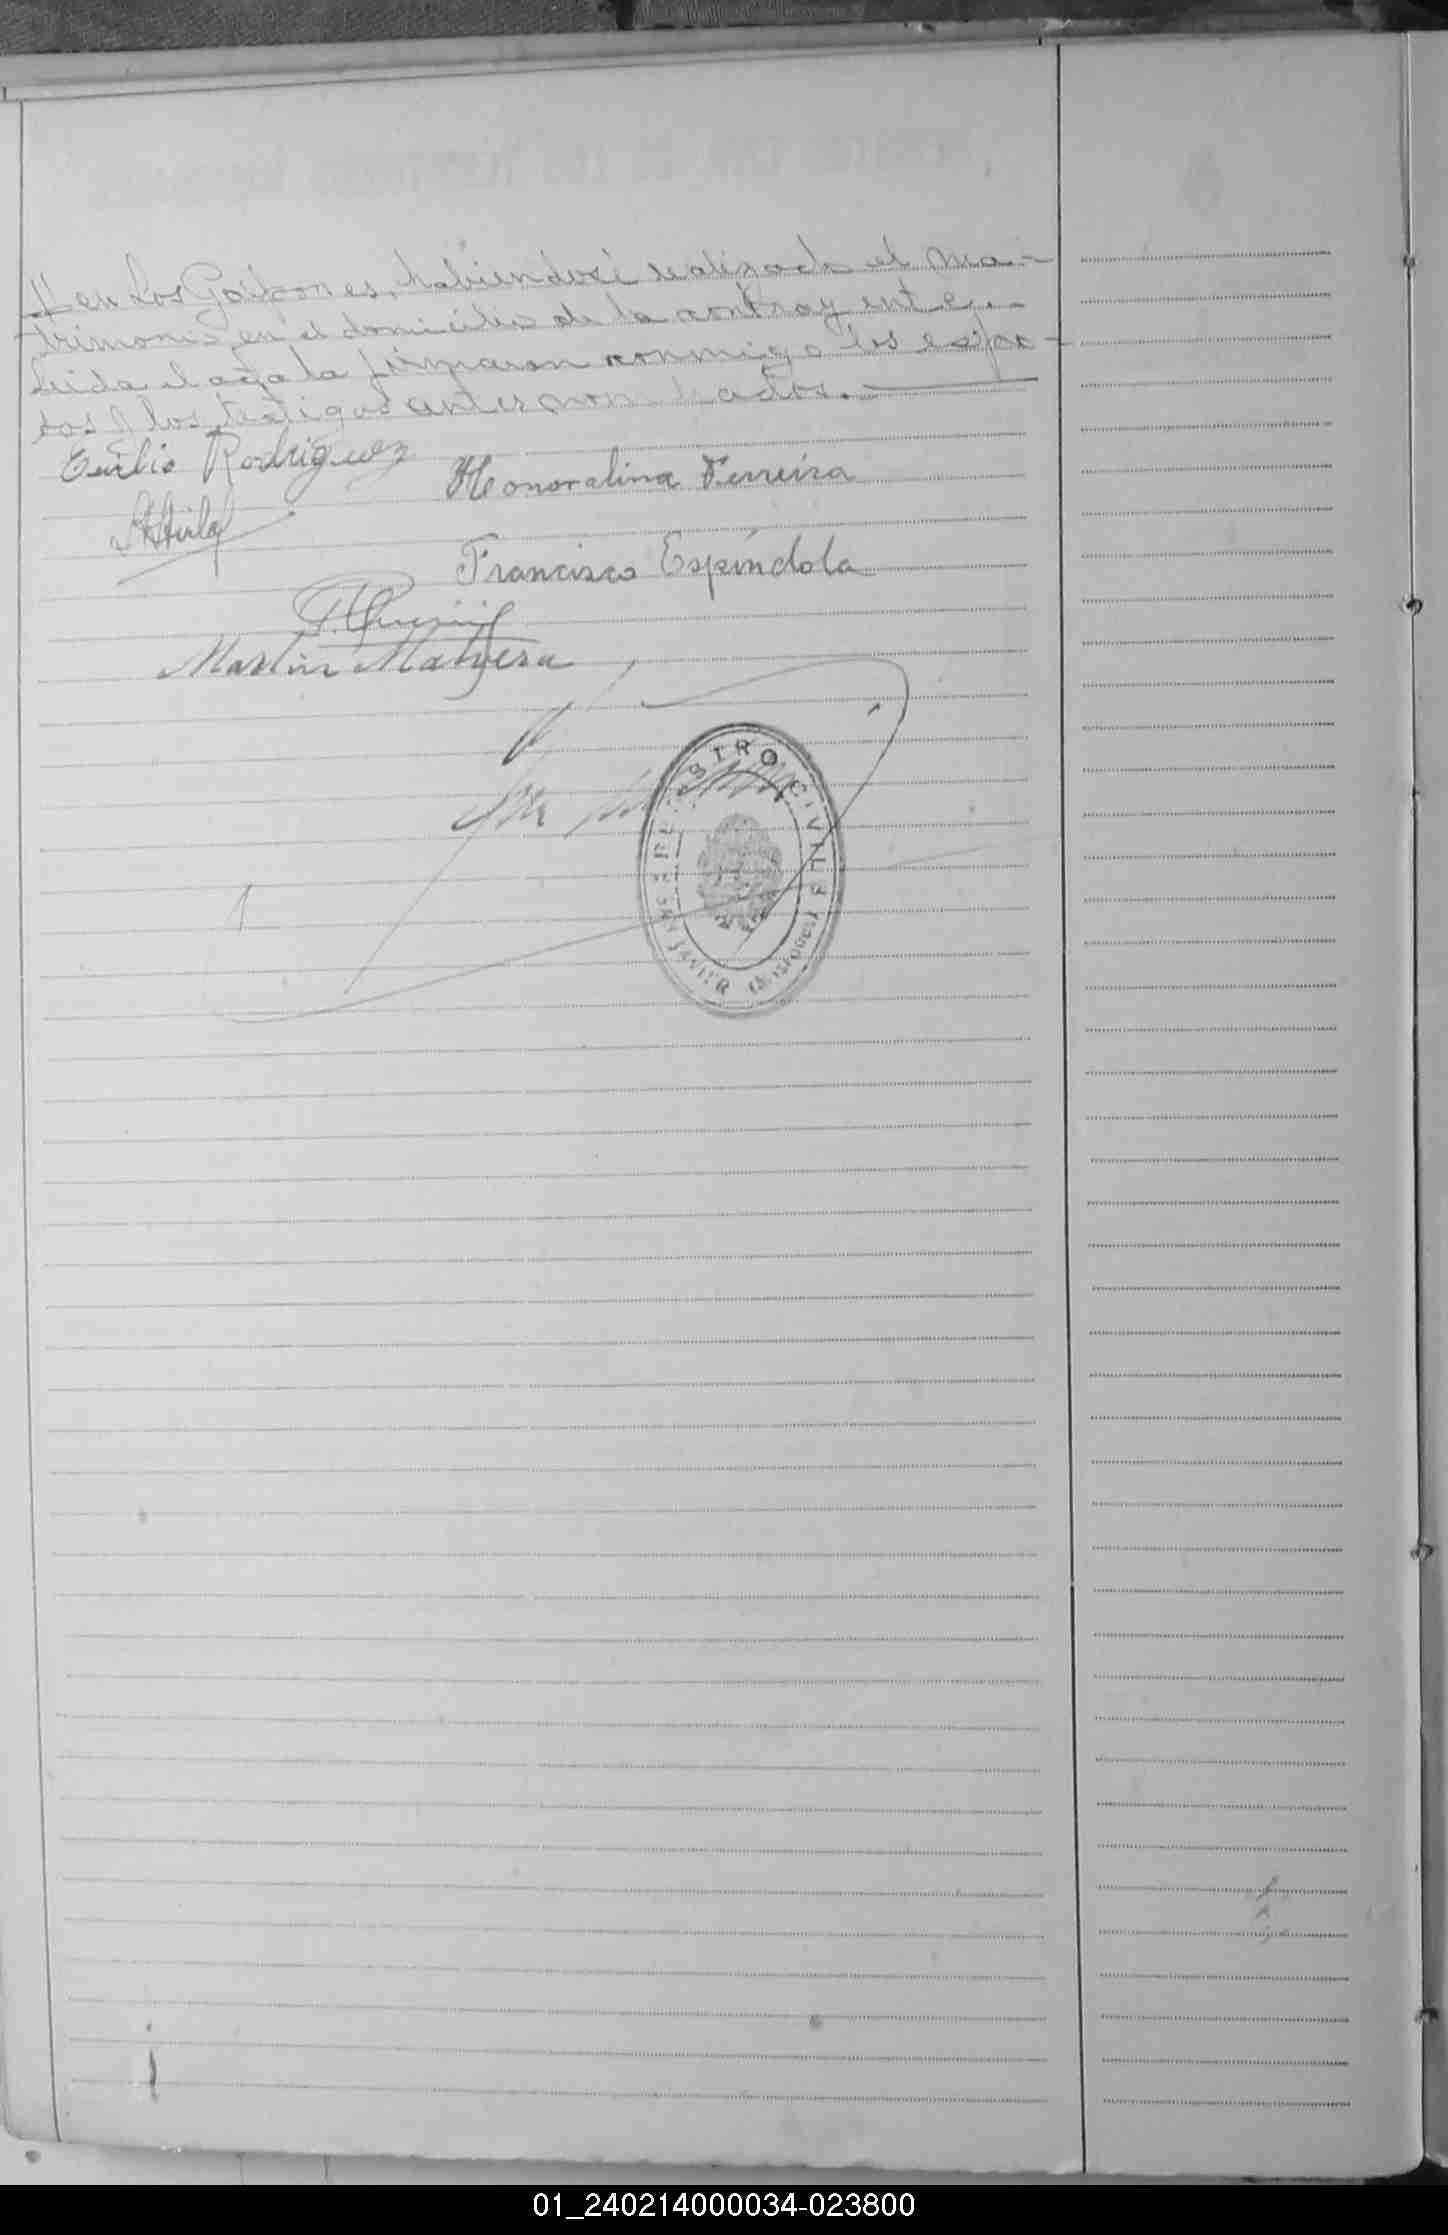 en Los Galpones, habiendose realizado el ma-
trimonio en el domicilio de la contrayente.-
Leida el acta la firmaron conmigo los espo-
sos y los testigos antes nombrados.
Rodriguez
Honoralina Ferreira
Francisco Espíndola
Martin
REGISTRO CIVIL
JAVIER (MISIONES)
01_240214000034-023800